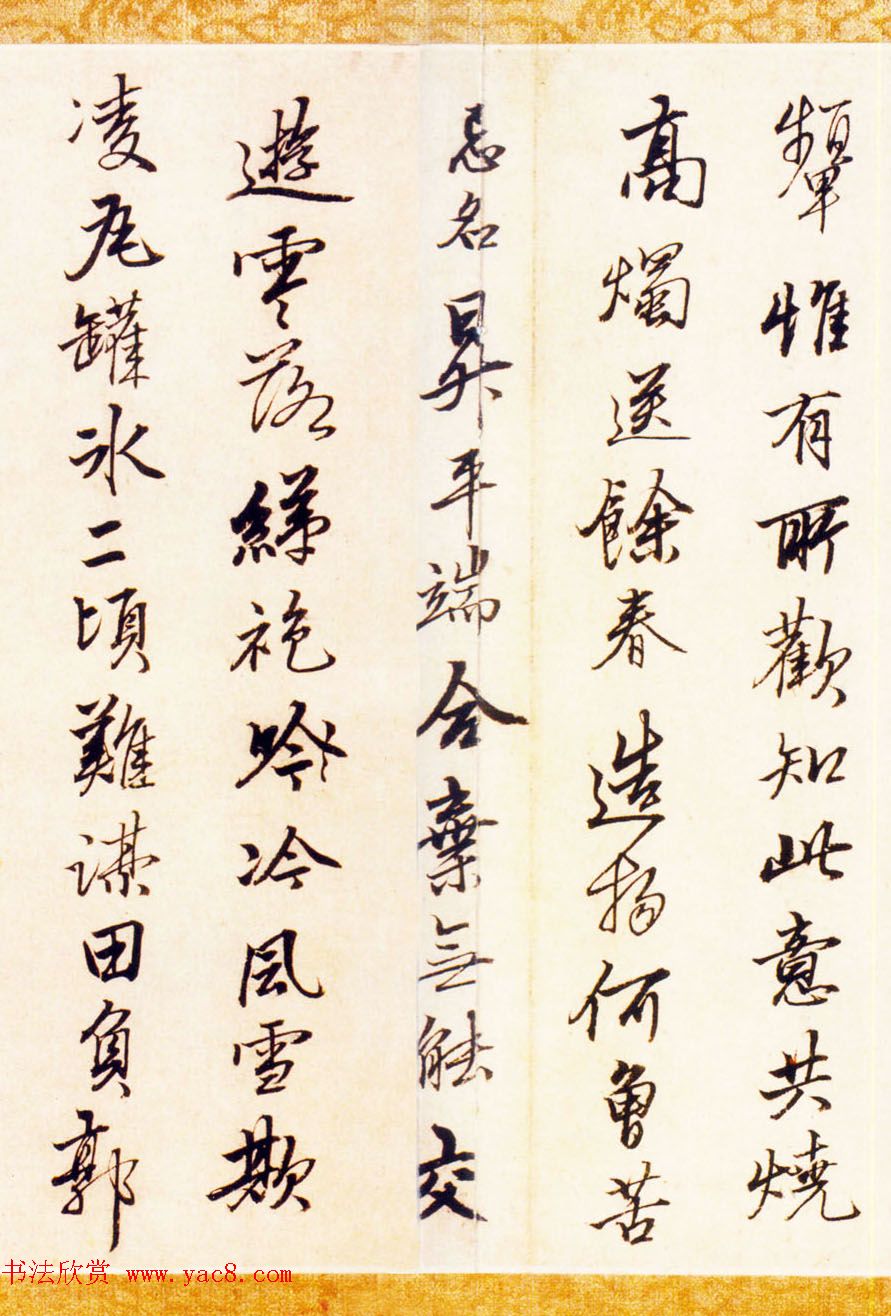 顰惟有所歡知此意共燒
高燭送餘春造物何曾苦
忌名昇平端合棄無能交
遊零落綈袍吟冷風雪欺
凌瓦罐氷二頃難謀田負郭
书法欣赏 www.yac8.com